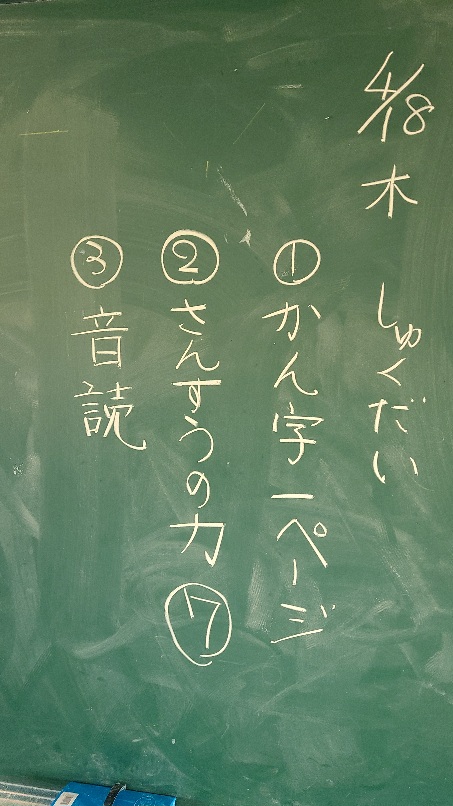 4/18 木 しゅくだい
①かん字一ページ
②さんすうの力⑦
③音読